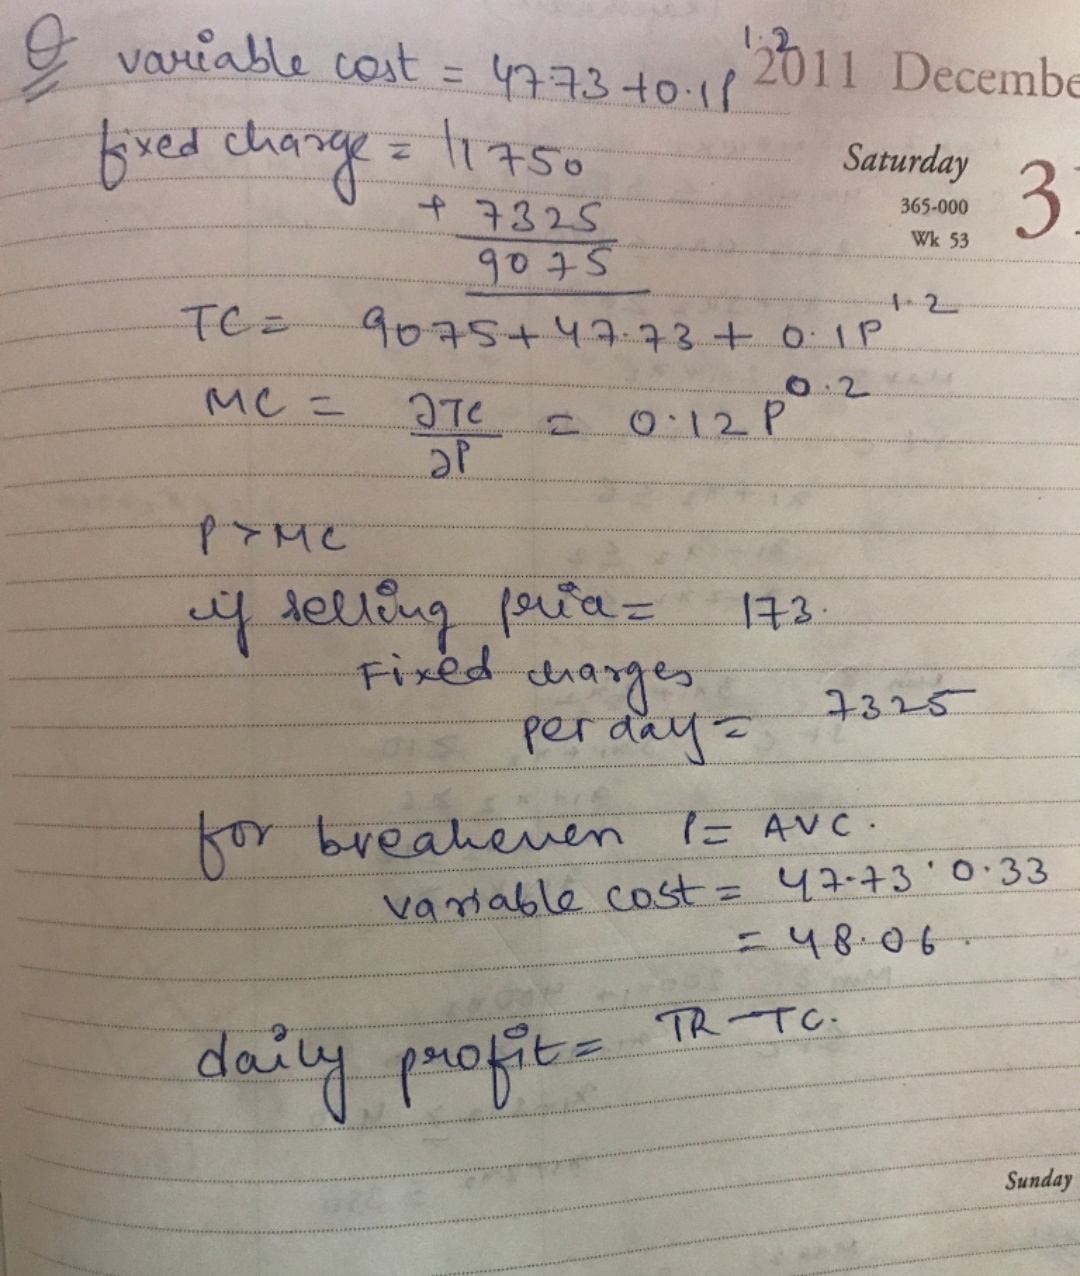 Q variable cost = 47.73 + 0.1P^1.2
2011 December
fixed charge = 11750
Saturday 31
+ 7325
365-000
9075
Wk 53
TC = 9075 + 47.73 + 0.1P^1.2
MC = ∂TC/∂P = 0.12 P^0.2
P > MC
if selling price = 173.
Fixed charges
per day = 7325
for breakeven P = AVC.
variable cost = 47.73 ' 0.33
= 48.06.
daily profit = TR - TC.
Sunday